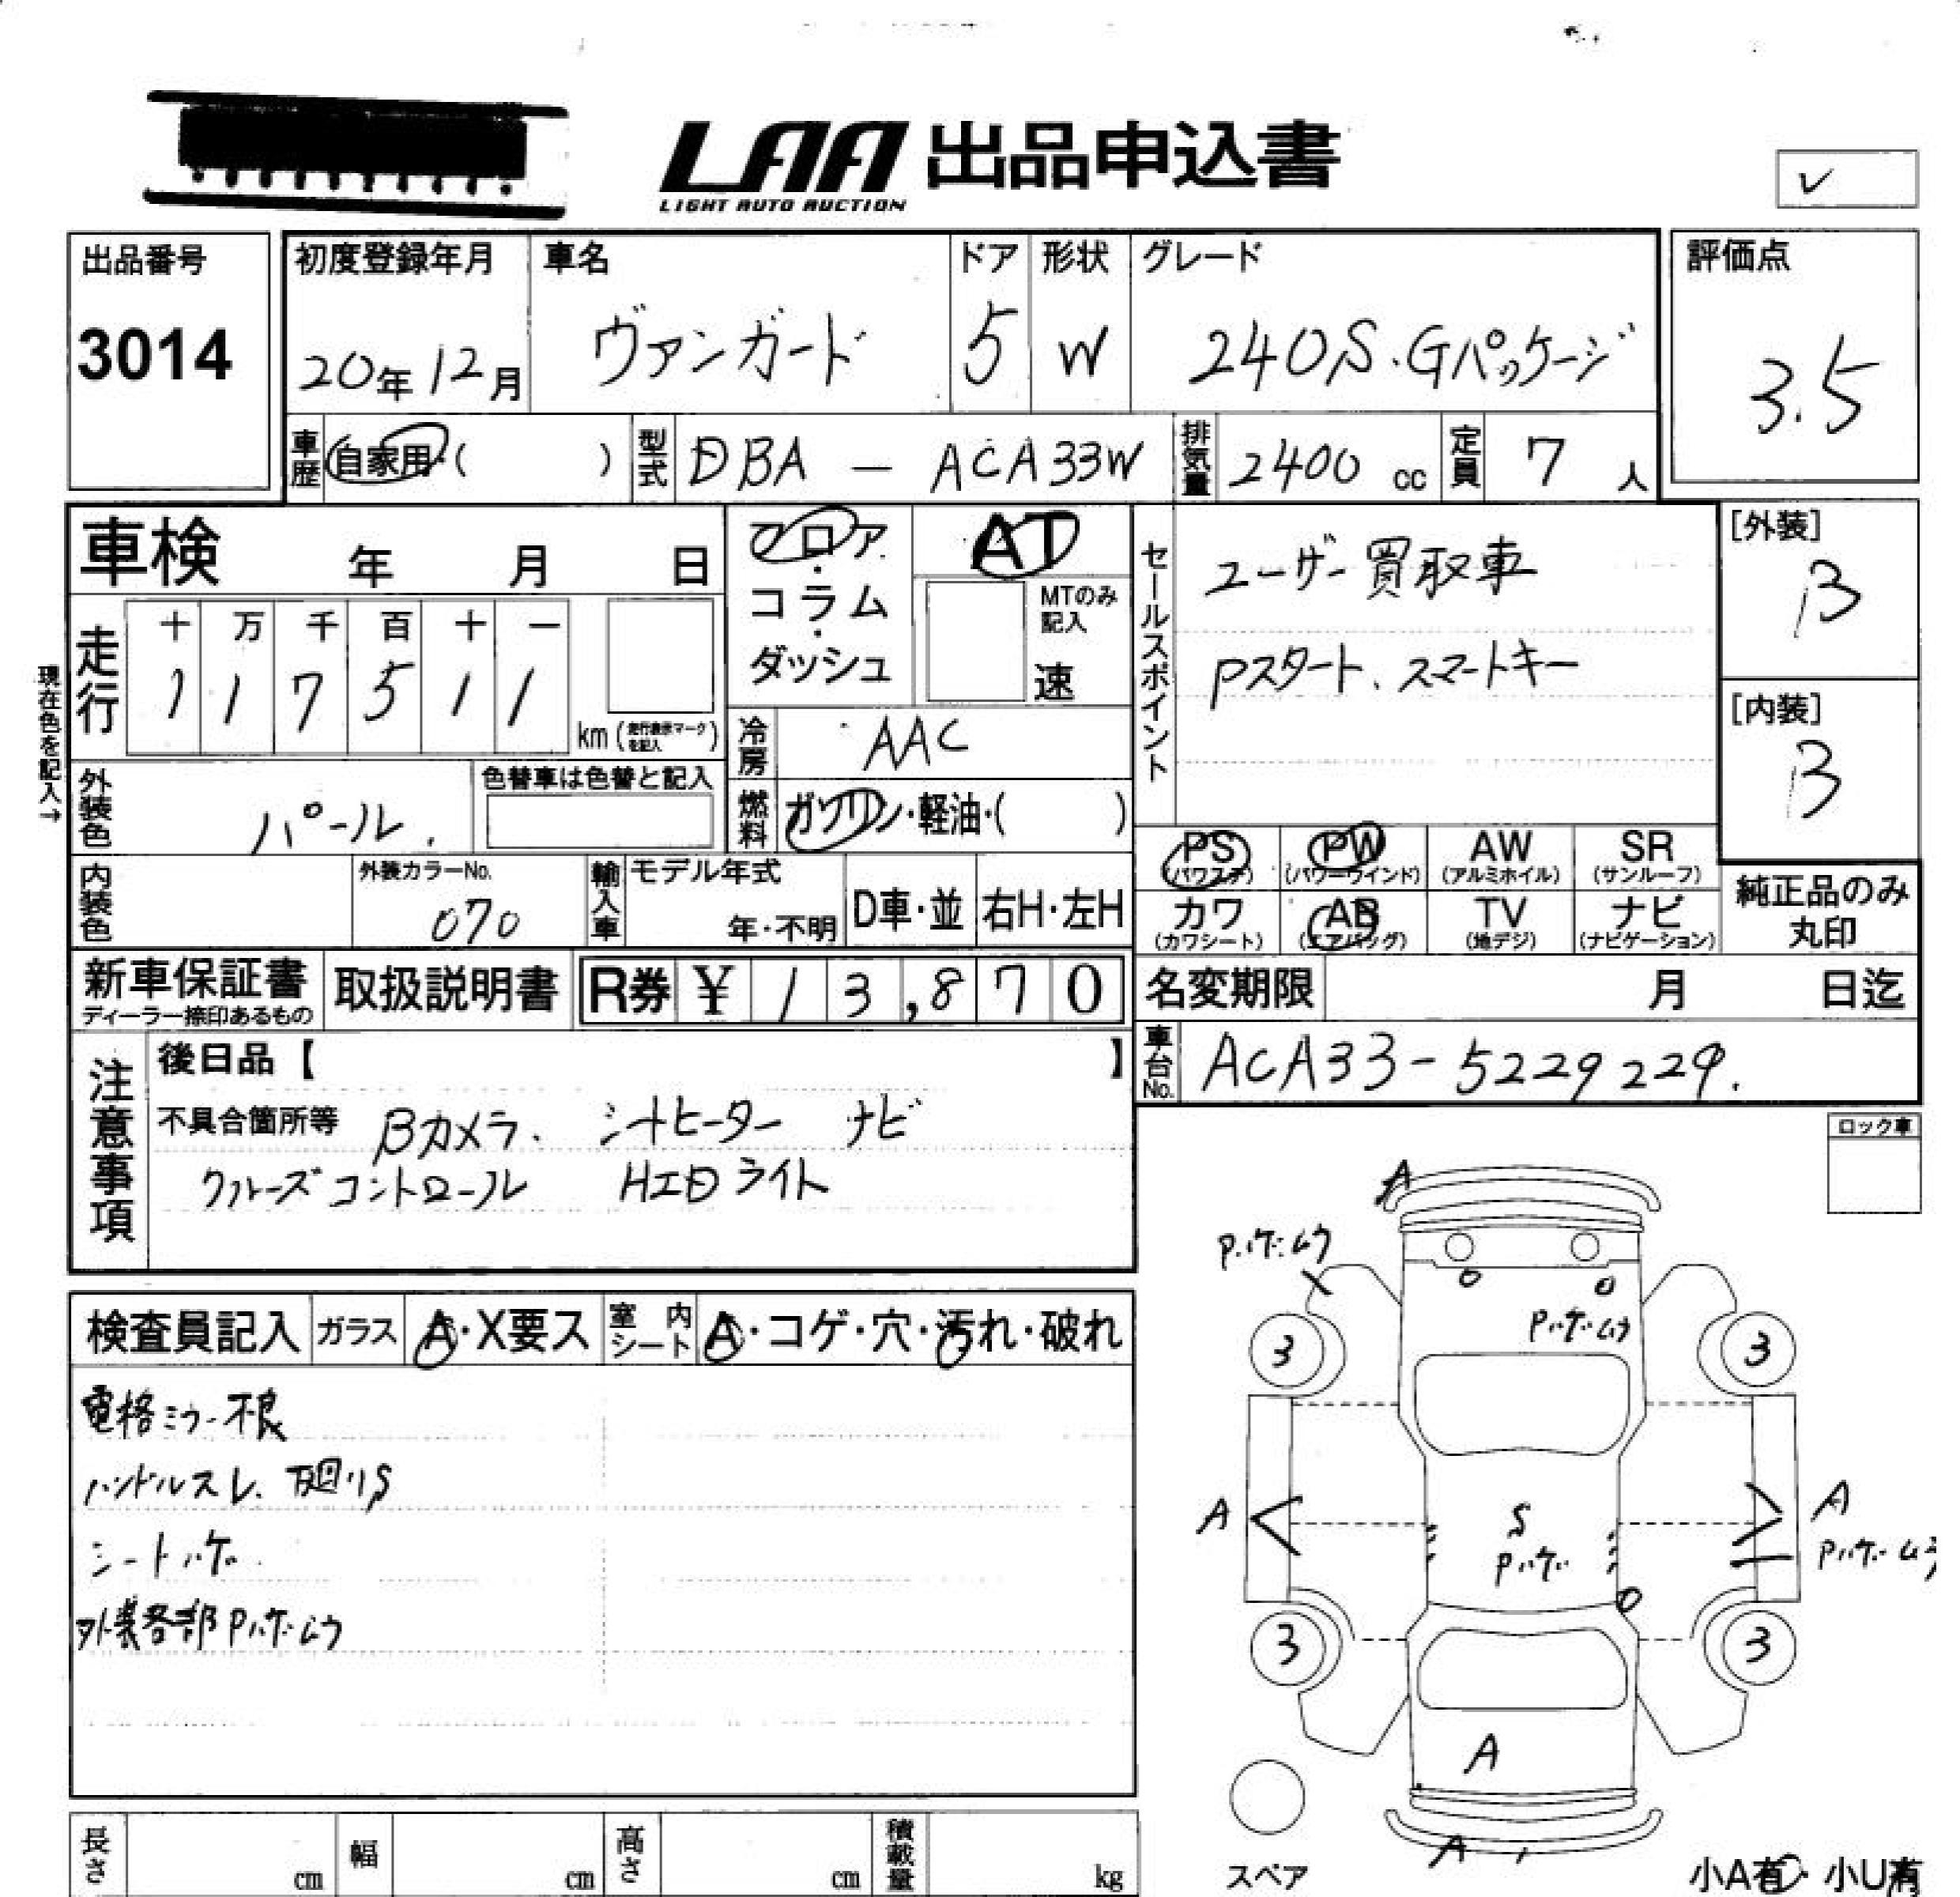 LAA 出品申込書
LIGHT AUTO AUCTION
出品番号
3014
初度登録年月
20年12月
車名
ヴァンガード
ドア
5
形状
W
グレード
240S・Gパッケージ
評価点
3.5
車歴
自家用・( )
型式
DBA - ACA33W
排気量
2400 cc
定員
7 人
車検 年 月 日
フロア・コラム・ダッシュ
AT
MTのみ記入
速
セールスポイント
ユーザー買取車
Pスタート、スマートキー
[外装]
B
[内装]
B
現在色を記入→
走行
十 万 千 百 十 一
1 1 7 5 1 1
km (走行表示マークを記入)
冷房
AAC
外装色
パール.
色替車は色替と記入
燃料
ガソリン・軽油・( )
PS (パワステ)
PW (パワーウインド)
AW (アルミホイル)
SR (サンルーフ)
カワ (カワシート)
AB (エアバッグ)
TV (地デジ)
ナビ (ナビゲーション)
純正品のみ
丸印
内装色
外装カラーNo.
070
輸入車
モデル年式
年・不明
D車・並
右H・左H
新車保証書
ディーラー捺印あるもの
取扱説明書
R券 ¥ 13,870
名変期限 月 日迄
車台No.
ACA33-5229229.
注意事項
後日品【 】
不具合箇所等 Bカメラ、 シートヒーター ナビ
クルーズコントロール HIDライト
ロック車
検査員記入
ガラス
A・X要ス
室内シート
A・コゲ・穴・汚れ・破れ
電格ミラー不良
ハンドルスレ、下廻りS
シートハゲ
外装各部Pハゲ・ムラ
A
Pハゲ・ムラ
Pハゲ・ムラ
3
3
A
S
Pハゲ
A
Pハゲ・ムラ
3
3
A
A
スペア
小A有・小U有
長さ cm
幅 cm
高さ cm
積載量 kg